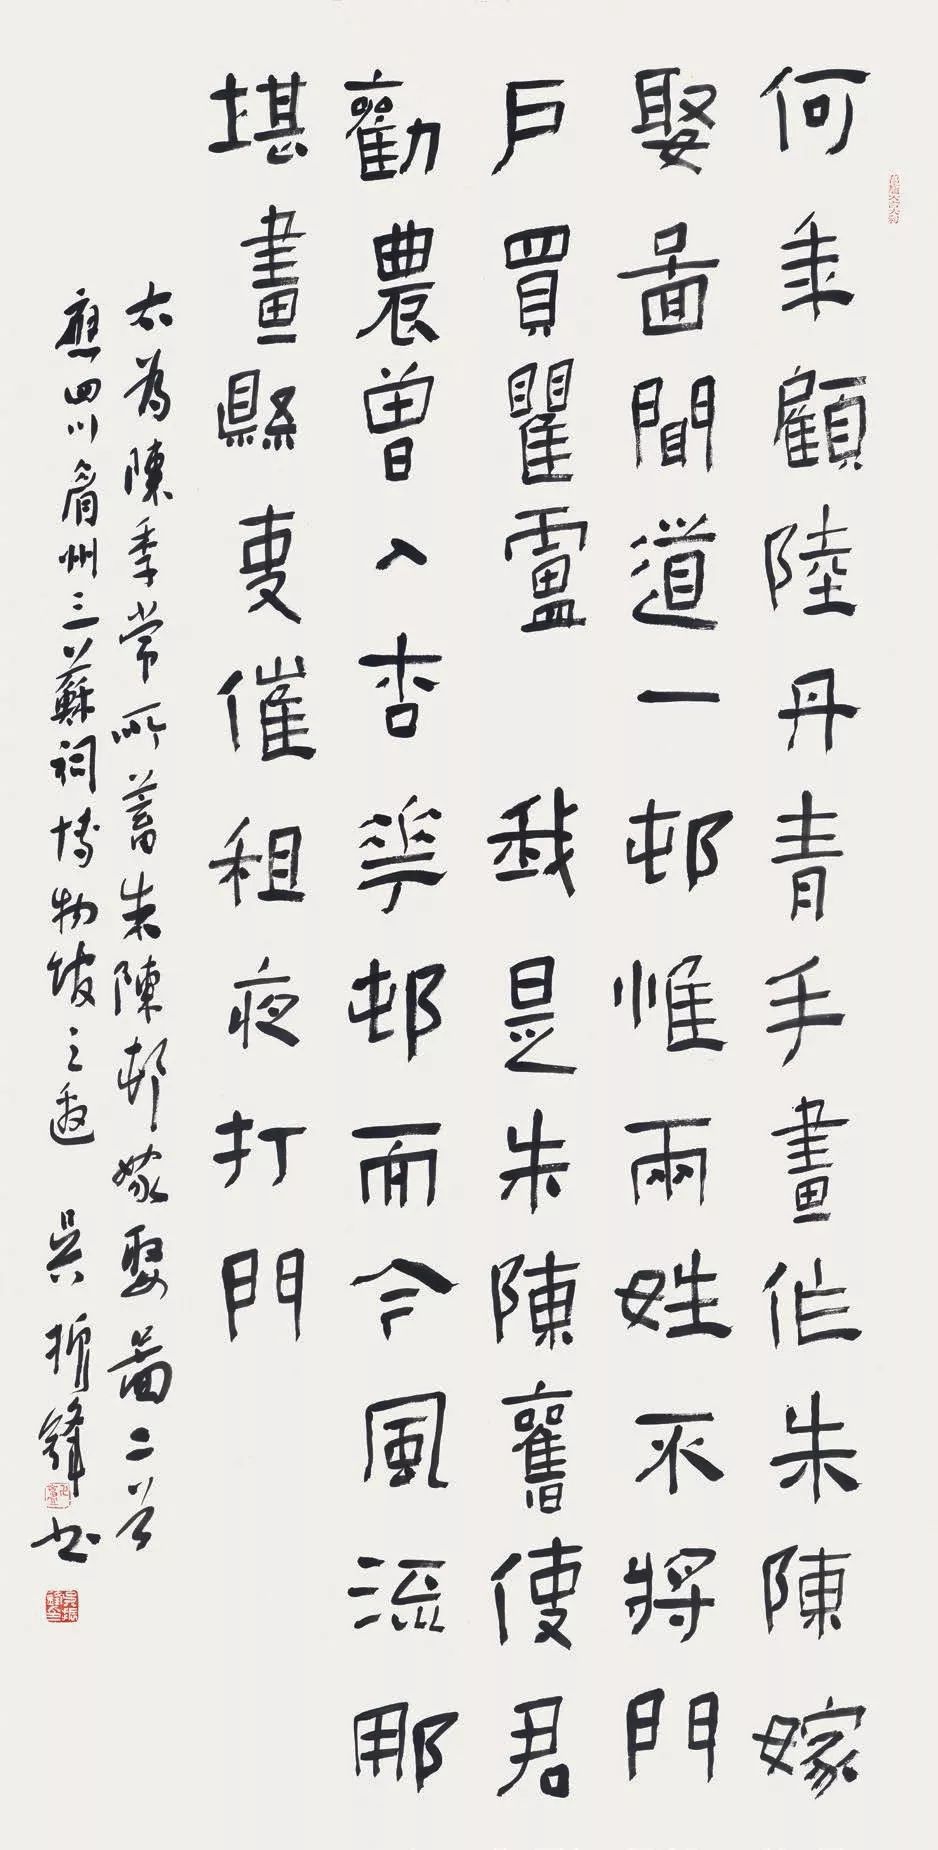 何年顧陸丹青手畫作朱陳嫁
娶圖聞道一邨惟兩姓不將門
戶買瞿盧 我是朱陳舊使君
勸農曾入杏華邨而今風流那
堪畫縣吏催租夜打門
右為陳季常所蓄朱陳邨嫁娶圖二首
應四川眉州三蘇祠博物館之邀 吳振鋒書